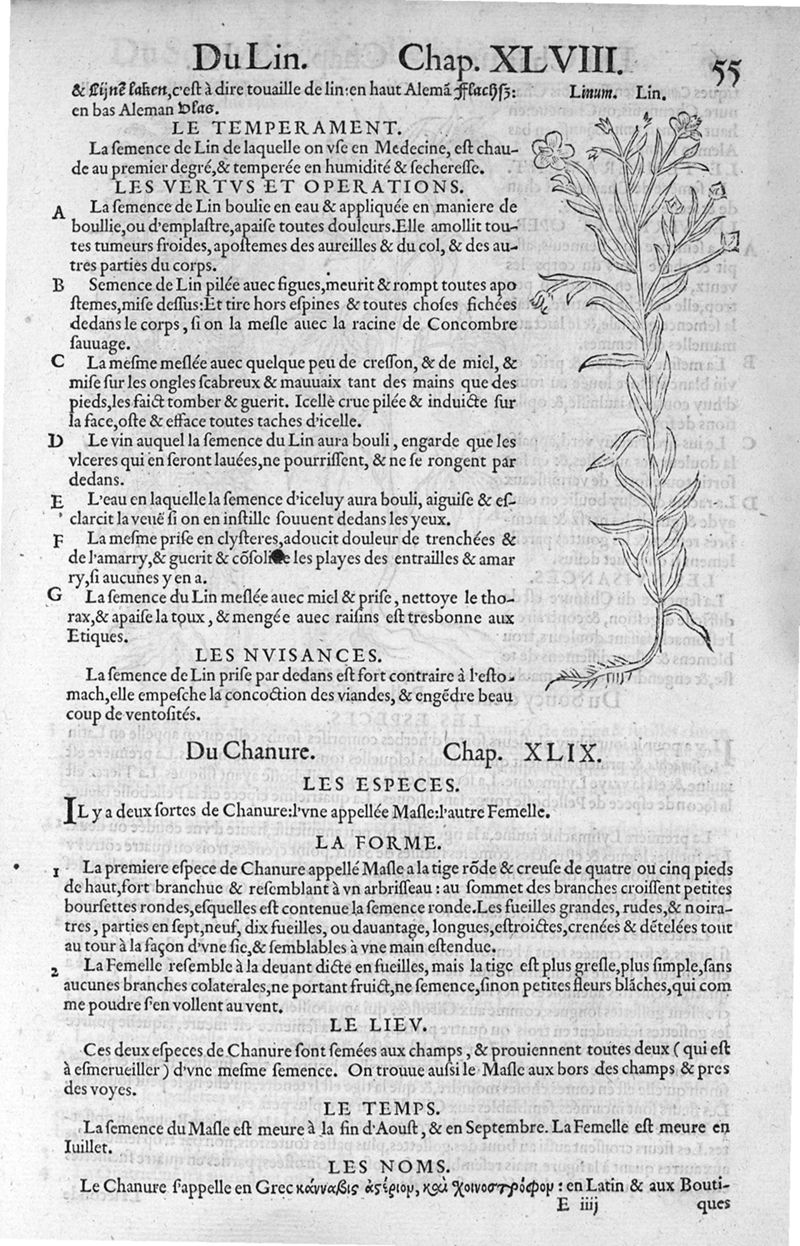 Du Lin. Chap. XLVIII. 55
& Lijnē laken, c'eſt à dire touaille de lin: en haut Alemā Flachſz:
en bas Aleman Vlas.
Linum. Lin.
LE TEMPERAMENT.
La ſemence de Lin de laquelle on vſe en Medecine, eſt chau-
de au premier degré, & temperée en humidité & ſechereſſe.
LES VERTVS ET OPERATIONS.
A La ſemence de Lin boulie en eau & appliquée en maniere de
boullie, ou d'emplaſtre, apaiſe toutes douleurs. Elle amollit tou-
tes tumeurs froides, apoſtemes des aureilles & du col, & des au-
tres parties du corps.
B Semence de Lin pilée auec figues, meurit & rompt toutes apo
ſtemes, miſe deſſus: Et tire hors eſpines & toutes choſes fichées
dedans le corps, ſi on la meſle auec la racine de Concombre
ſauuage.
C La meſme meſlée auec quelque peu de creſſon, & de miel, &
miſe ſur les ongles ſcabreux & mauuaix tant des mains que des
pieds, les faict tomber & guerit. Icellè crue pilée & induicte ſur
la face, oſte & efface toutes taches d'icelle.
D Le vin auquel la ſemence du Lin aura bouli, engarde que les
vlceres qui en ſeront lauées, ne pourriſſent, & ne ſe rongent par
dedans.
E L'eau en laquelle la ſemence d'iceluy aura bouli, aiguiſe & eſ-
clarcit la veuë ſi on en inſtille ſouuent dedans les yeux.
F La meſme priſe en clyſteres, adoucit douleur de trenchées &
de l'amarry, & guerit & cōſolide les playes des entrailles & amar
ry, ſi aucunes y en a.
G La ſemence du Lin meſlée auec miel & priſe, nettoye le tho-
rax, & apaiſe la toux, & mengée auec raiſins eſt tresbonne aux
Etiques.
LES NVISANCES.
La ſemence de Lin priſe par dedans eſt fort contraire à l'eſto-
mach, elle empeſche la concoction des viandes, & engēdre beau
coup de ventoſités.
Du Chanure. Chap. XLIX.
LES ESPECES.
IL y a deux ſortes de Chanure: l'vne appellée Maſle: l'autre Femelle.
LA FORME.
1 La premiere eſpece de Chanure appellé Maſle a la tige rōde & creuſe de quatre ou cinq pieds
de haut, fort branchue & reſemblant à vn arbriſſeau: au ſommet des branches croiſſent petites
bourſettes rondes, eſquelles eſt contenue la ſemence ronde. Les fueilles grandes, rudes, & noira-
tres, parties en ſept, neuf, dix fueilles, ou dauantage, longues, eſtroictes, crenées & dētelées tout
au tour à la façon d'vne ſie, & ſemblables à vne main eſtendue.
2 La Femelle reſemble à la deuant dicte en fueilles, mais la tige eſt plus greſle, plus ſimple, ſans
aucunes branches colaterales, ne portant fruict, ne ſemence, ſinon petites fleurs blāches, qui com
me poudre ſ'en vollent au vent.
LE LIEV.
Ces deux eſpeces de Chanure ſont ſemées aux champs, & prouiennent toutes deux (qui eſt
à eſmerueiller) d'vne meſme ſemence. On trouue auſſi le Maſle aux bors des champs & pres
des voyes.
LE TEMPS.
La ſemence du Maſle eſt meure à la fin d'Aouſt, & en Septembre. La Femelle eſt meure en
Iuillet.
LES NOMS.
Le Chanure ſ'appelle en Grec κάνναβις ἀϛέριομ, καὶ χοινοστρόφομ: en Latin & aux Bouti-
E iiij ques